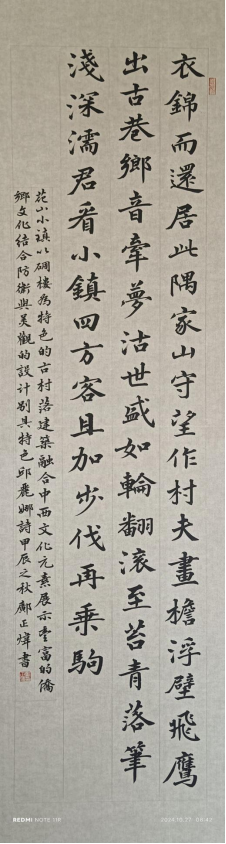 衣錦而還居此隅家山守望作村夫畫檐浮壁飛鷹
出古巷鄉音牽夢沽世盛如輪翻滾至苔青落筆
淺深濡君看小鎮四方客且加步伐再乘駒
花山小鎮以碉樓為特色的古村落建築融合中西文化元素展示豐富的僑
鄉文化結合防衛與美觀的設計別具特色邱麗娜詩甲辰之秋鄺正煒書
REDMI NOTE 11P